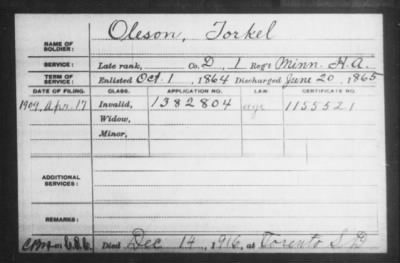 Oleson, Torkel
NAME OF SOLDIER:
SERVICE: Late rank, Co. D, 1 Reg't Minn. H.A.
TERM OF SERVICE: Enlisted Oct. 1, 1864 Discharged June 20, 1865
DATE OF FILING. CLASS. APPLICATION NO. LAW. CERTIFICATE NO.
1909, Apr. 17 Invalid, 1382804 age 1155521
Widow,
Minor,
ADDITIONAL SERVICES:
REMARKS:
Died Dec 14, 1916, at Toronto S.D.